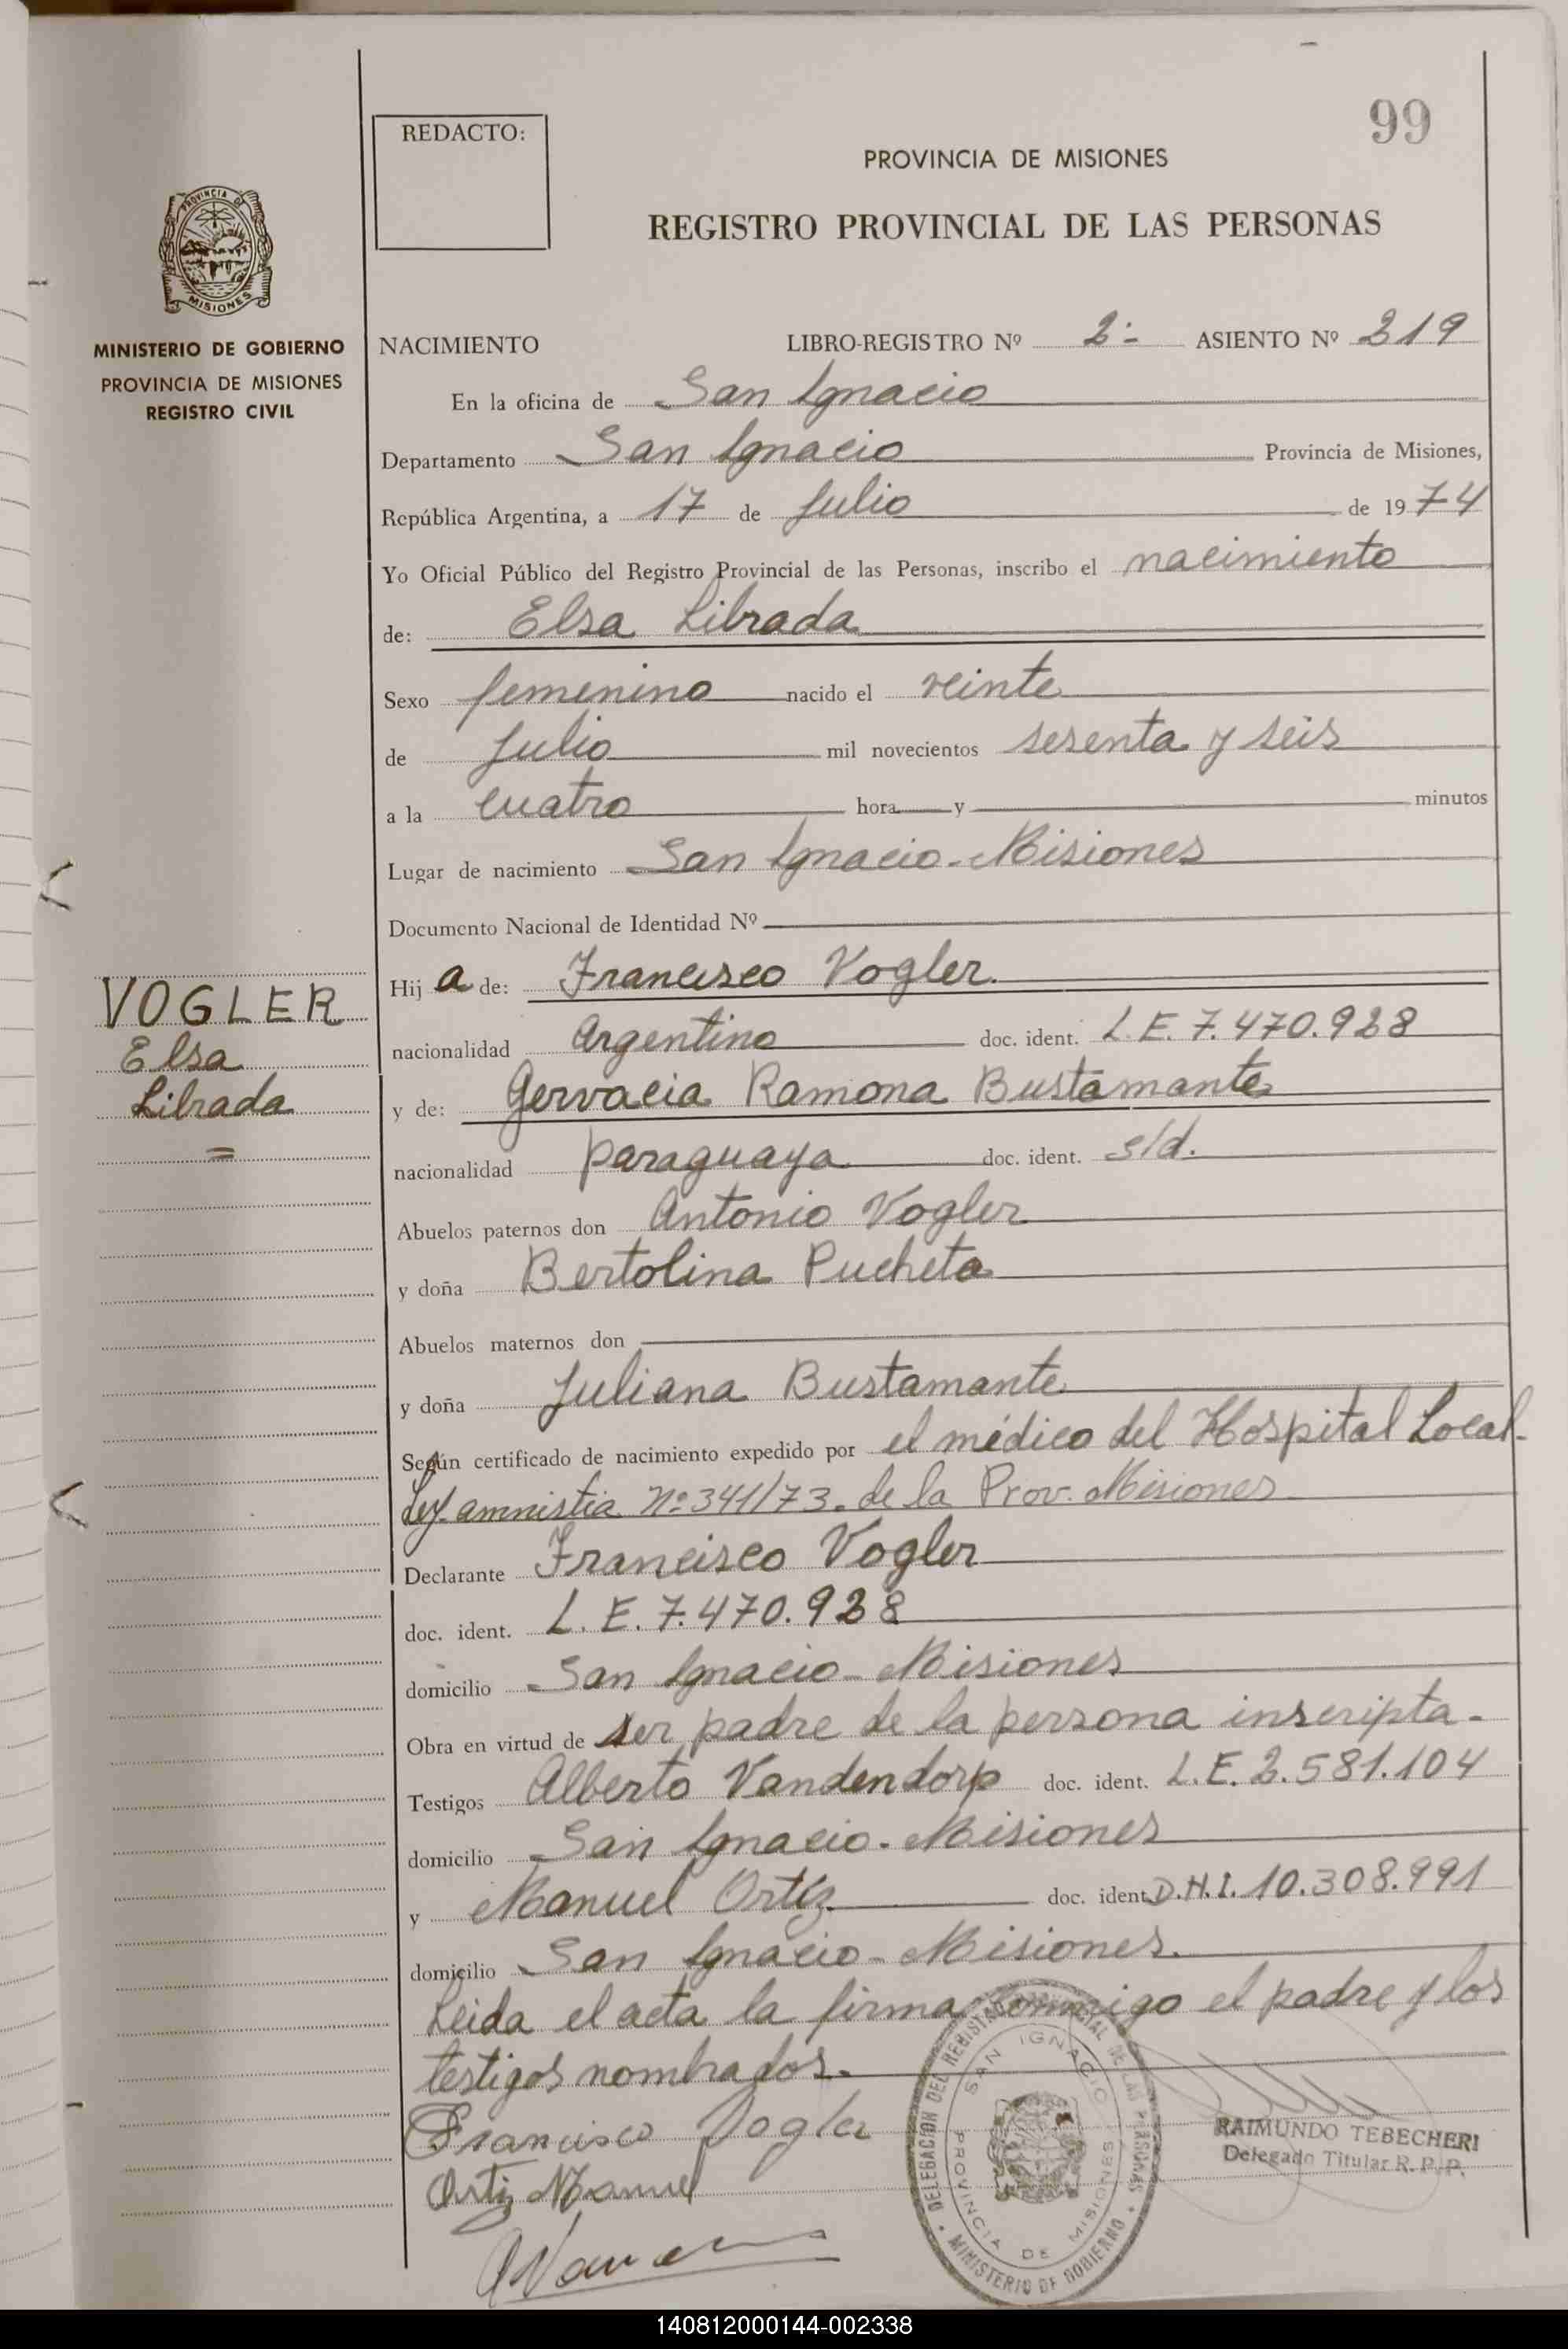 99
REDACTO:
PROVINCIA DE MISIONES
REGISTRO PROVINCIAL DE LAS PERSONAS
PROVINCIA DE
MISIONES
MINISTERIO DE GOBIERNO
PROVINCIA DE MISIONES
REGISTRO CIVIL
NACIMIENTO LIBRO-REGISTRO Nº 2:- ASIENTO Nº 219
En la oficina de San Ignacio
Departamento San Ignacio Provincia de Misiones,
República Argentina, a 17 de Julio de 1974
Yo Oficial Público del Registro Provincial de las Personas, inscribo el nacimiento
de: Elsa Librada
Sexo femenino nacido el veinte
de Julio mil novecientos sesenta y seis
a la cuatro hora y minutos
Lugar de nacimiento San Ignacio - Misiones
Documento Nacional de Identidad Nº
VOGLER
Elsa
Librada
=
Hija de: Francisco Vogler.
nacionalidad Argentino doc. ident. L.E. 7.470.928
y de: Gervacia Ramona Bustamante
nacionalidad paraguaya doc. ident. s/d.
Abuelos paternos don Antonio Vogler
y doña Bertolina Pucheta
Abuelos maternos don
y doña Juliana Bustamante
Según certificado de nacimiento expedido por el médico del Hospital Local.
Ley amnistia Nº 341/73. de la Prov. Misiones
Declarante Francisco Vogler
doc. ident. L.E. 7.470.928
domicilio San Ignacio - Misiones
Obra en virtud de ser padre de la persona inscripta.
Testigos Alberto Vandendorp doc. ident. L.E. 2.581.104
domicilio San Ignacio - Misiones
y Manuel Ortiz doc. ident. D.N.I. 10.308.991
domicilio San Ignacio - Misiones.
Leida el acta la firma conmigo el padre y los
testigos nombrados.
Francisco Vogler
Ortiz Manuel
DELEGACION DEL REGISTRO PROVINCIAL DE LAS PERSONAS
SAN IGNACIO
PROVINCIA DE MISIONES
MINISTERIO DE GOBIERNO
RAIMUNDO TEBECHERI
Delegado Titular R. P. P.
140812000144-002338